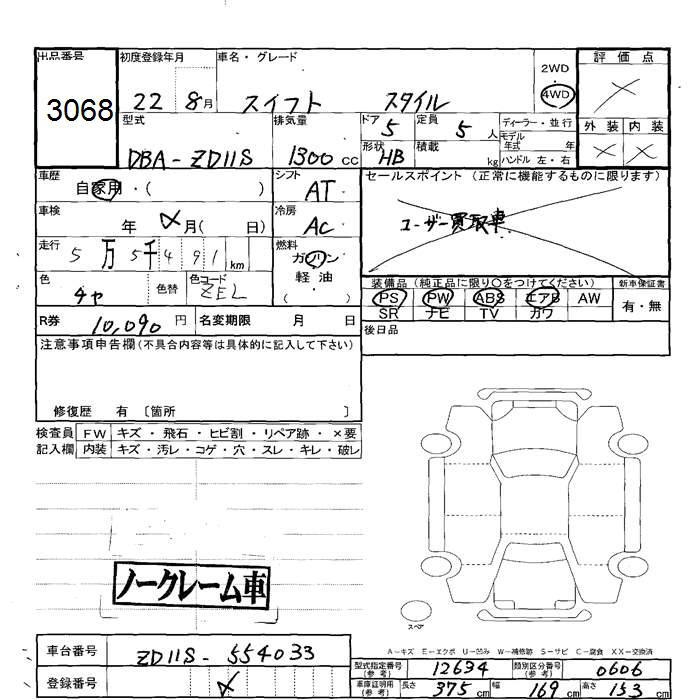 出品番号
3068
初度登録年月
22 8月
車名・グレード
スイフト スタイル
2WD
4WD
評価点
×
外装 内装
× ×
型式
DBA-ZD11S
排気量
1300cc
ドア
5
定員
5人
形状
HB
積載
kg
ディーラー・並行
モデル年式 年
ハンドル 左・右
車歴
自家用・( )
シフト
AT
セールスポイント(正常に機能するものに限ります)
ユーザー買取車
車検
年 月( 日)
冷房
AC
走行
5万5千491km
燃料
ガソリン
軽油
( )
色
チャ
色替
色コード
ZEL
装備品(純正品に限り○をつけてください)
PS PW ABS エアB AW
SR ナビ TV カワ
新車保証書
有・無
R券 10,090円
名変期限 月 日
後日品
注意事項申告欄(不具合内容等は具体的に記入して下さい)
修復歴 有〔箇所 〕
検査員記入欄
FW キズ・飛石・ヒビ割・リペア跡・×要
内装 キズ・汚レ・コゲ・穴・スレ・キレ・破レ
ノークレーム車
スペア
A-キズ E-エクボ U-凹み W-補修跡 S-サビ C-腐食 XX-交換済
車台番号
ZD11S-554033
登録番号
型式指定番号(参考) 12634
類別区分番号(参考) 0606
車庫証明用(参考) 長さ 375cm 幅 169cm 高さ 153cm